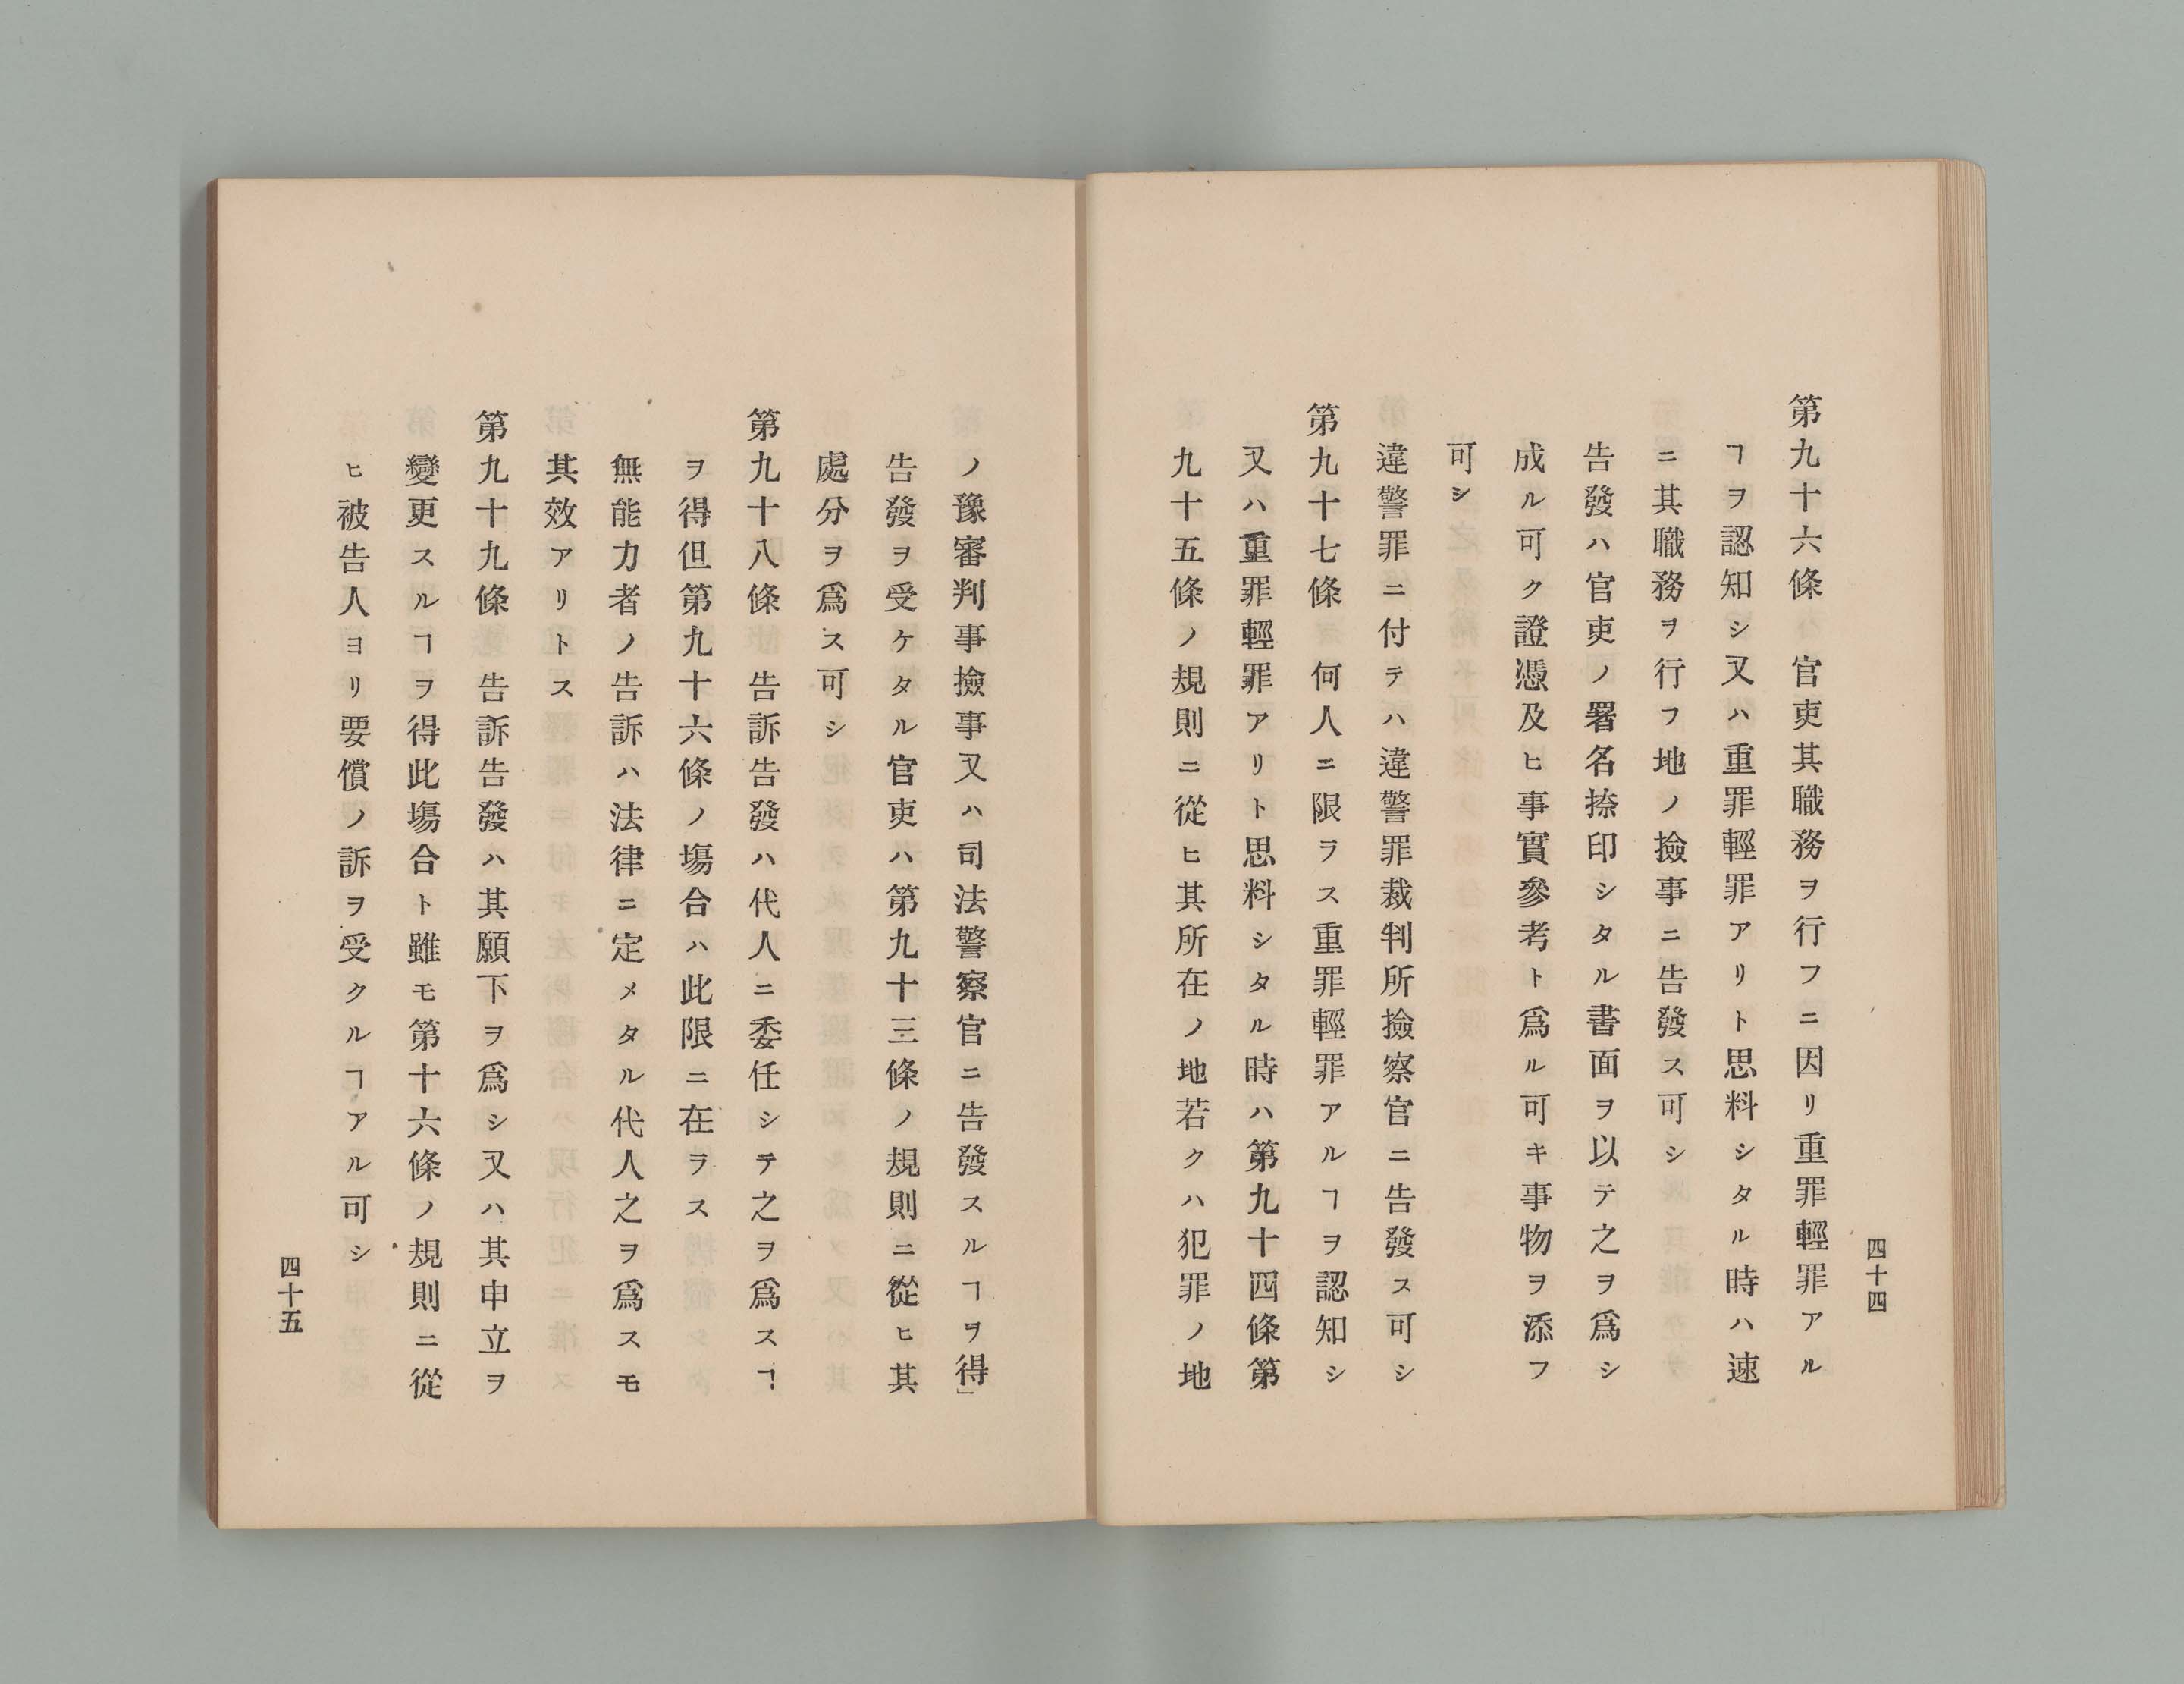 四十四
第九十六條　官吏其職務ヲ行フニ因リ重罪輕罪アル
ヿヲ認知シ又ハ重罪輕罪アリト思料シタル時ハ速
ニ其職務ヲ行フ地ノ撿事ニ告發ス可シ
告發ハ官吏ノ署名捺印シタル書面ヲ以テ之ヲ爲シ
成ル可ク證憑及ヒ事實參考ト爲ル可キ事物ヲ添フ
可シ
違警罪ニ付テハ違警罪裁判所撿察官ニ告發ス可シ
第九十七條　何人ニ限ラス重罪輕罪アルヿヲ認知シ
又ハ重罪輕罪アリト思料シタル時ハ第九十四條第
九十五條ノ規則ニ從ヒ其所在ノ地若クハ犯罪ノ地
ノ豫審判事撿事又ハ司法警察官ニ告發スルヿヲ得」
告發ヲ受ケタル官吏ハ第九十三條ノ規則ニ從ヒ其
處分ヲ爲ス可シ
第九十八條　告訴告發ハ代人ニ委任シテ之ヲ爲スヿ
ヲ得但第九十六條ノ塲合ハ此限ニ在ラス
無能力者ノ告訴ハ法律ニ定メタル代人之ヲ爲スモ
其效アリトス
第九十九條　告訴告發ハ其願下ヲ爲シ又ハ其申立ヲ
變更スルヿヲ得此塲合ト雖モ第十六條ノ規則ニ從
ヒ被告人ヨリ要償ノ訴ヲ受クルヿアル可シ
四十五